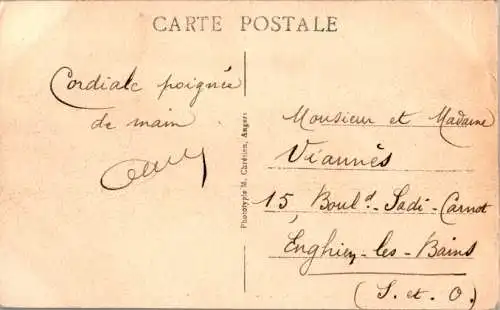 CARTE POSTALE
Cordiale poignée
de main
Phototypie M. Chrétien, Angers
Monsieur et Madame
Viannès
15, Boul.d Sadi-Carnot
Enghien-les-Bains
(S.-et-O.)